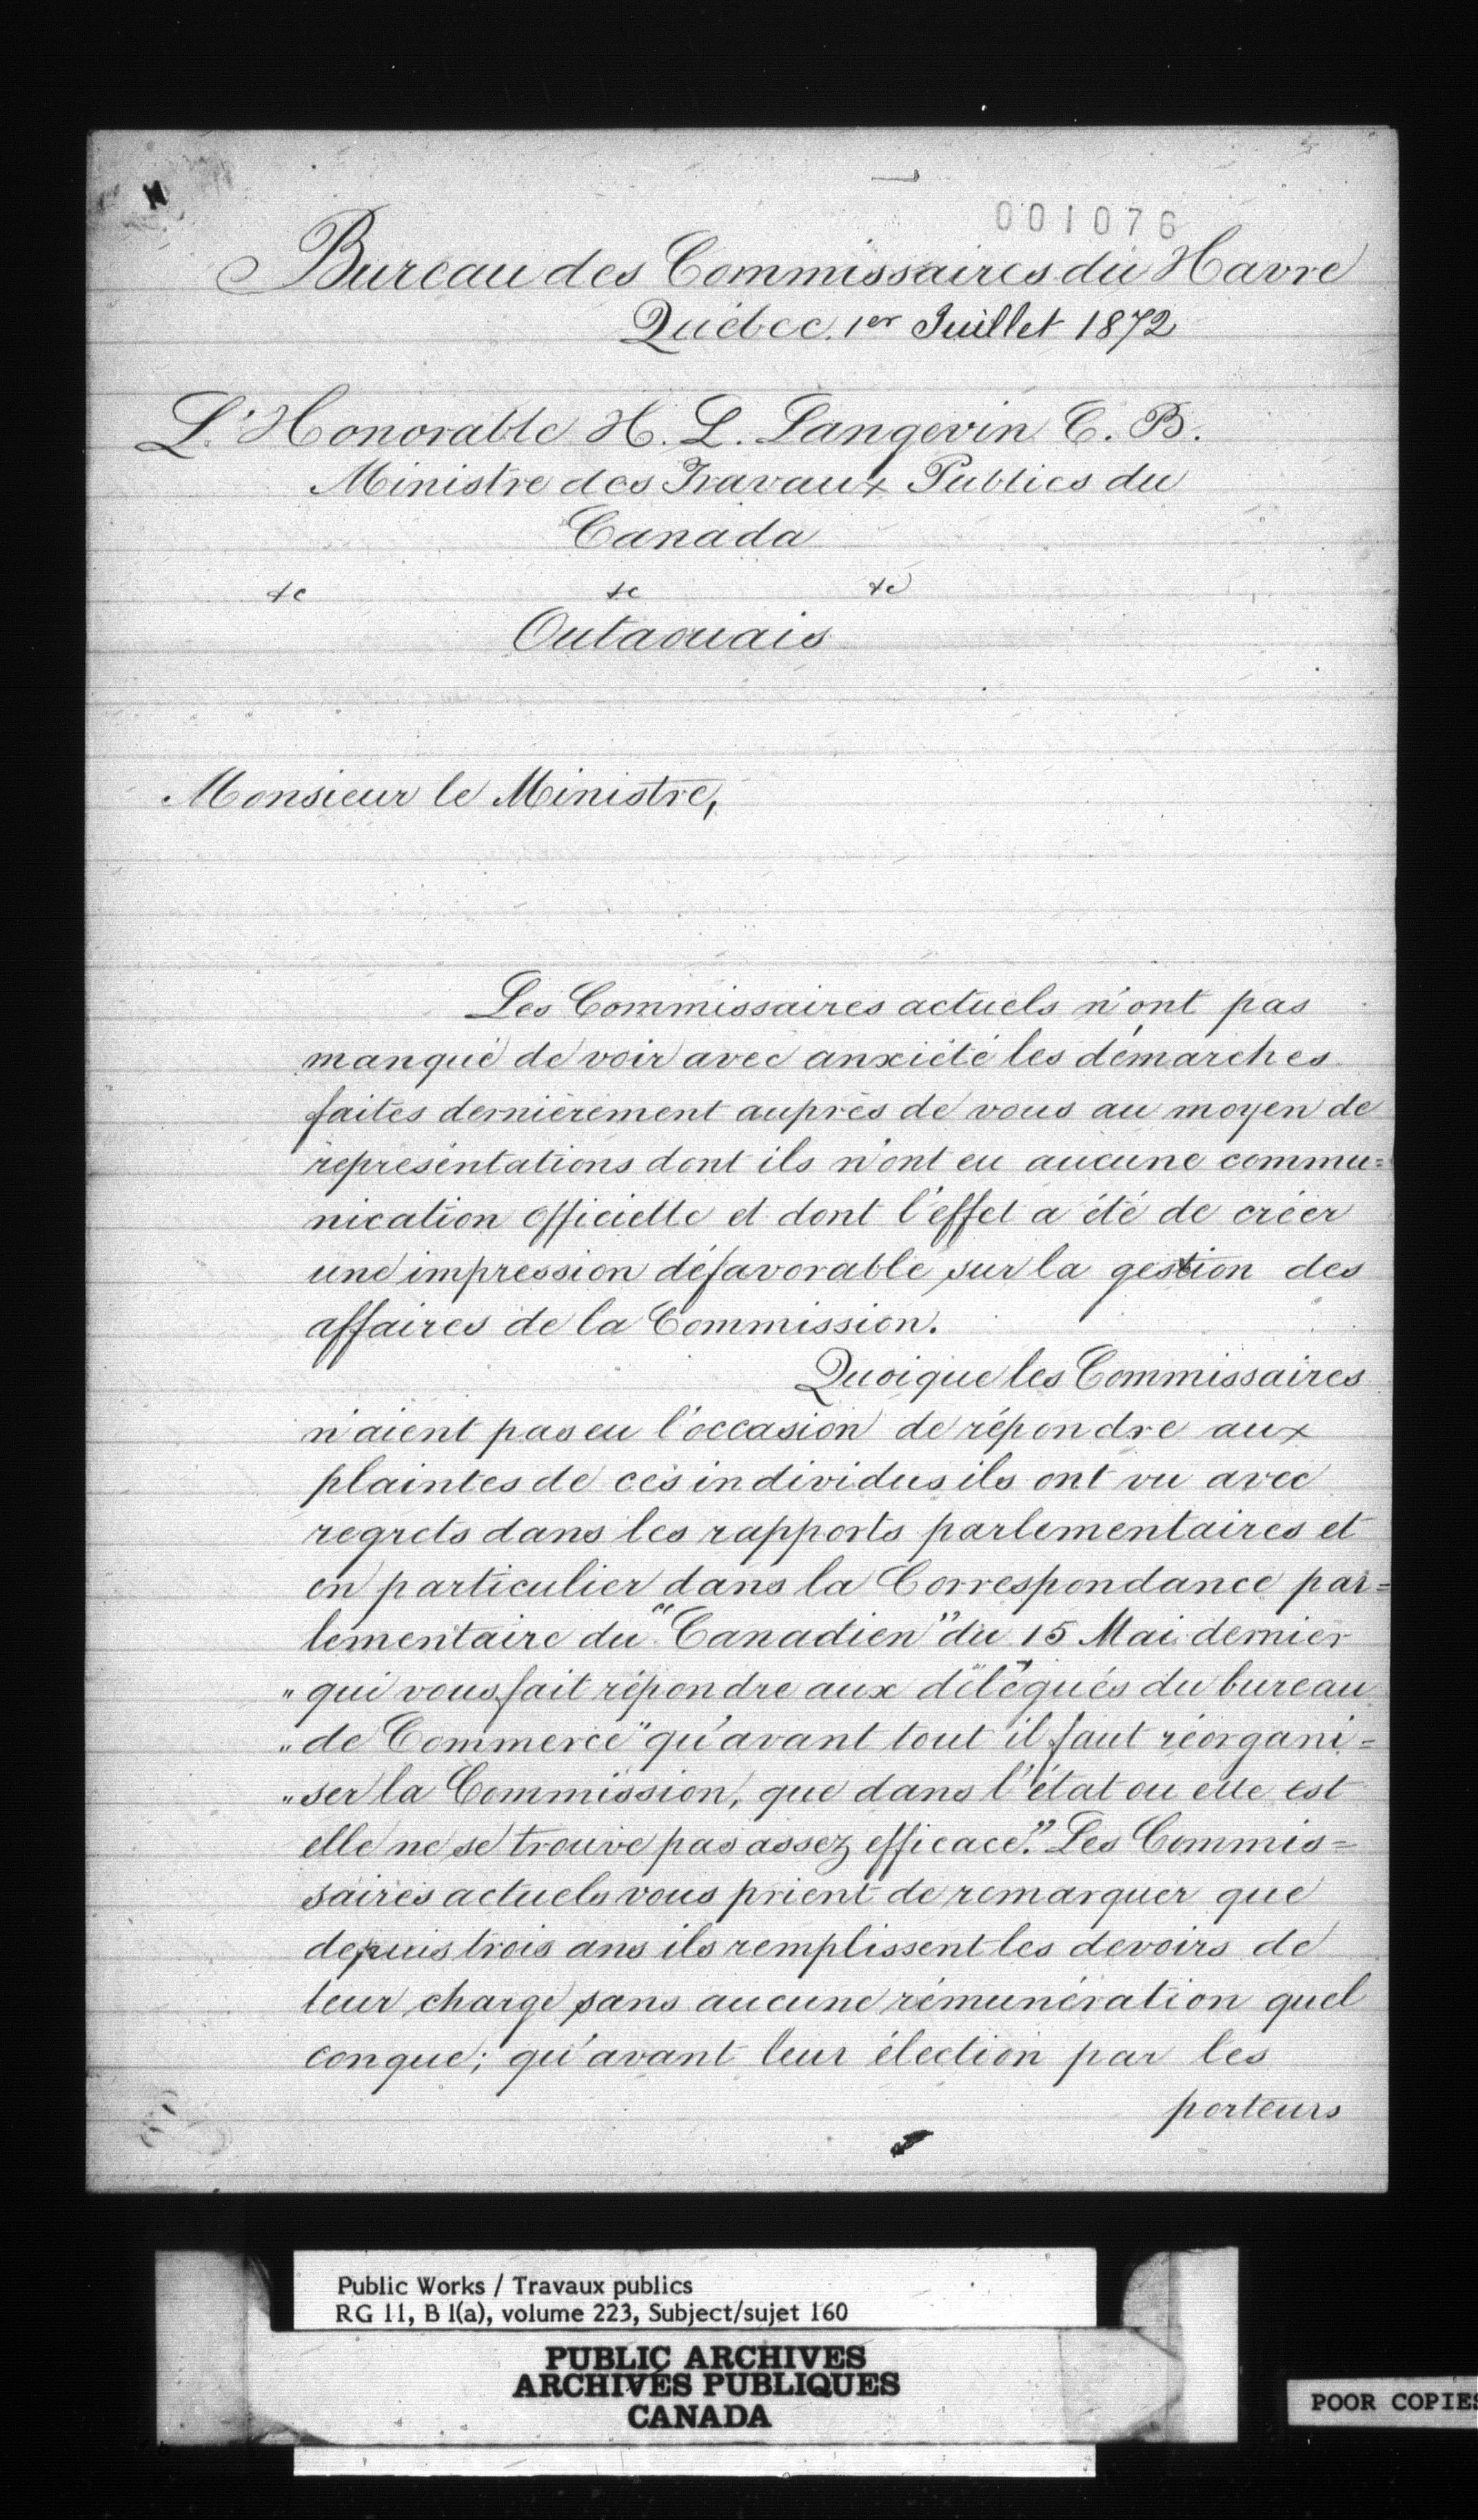 001076
Bureau des Commissaires du Havre
Québec. 1er Juillet 1872
L'Honorable H. L. Langevin C. B.
Ministre des Travaux Publics du
Canada
&c &c &c
Outaouais
Monsieur le Ministre,
Les Commissaires actuels n'ont pas
manqué de voir avec anxiété les démarches
faites dernièrement auprès de vous au moyen de
représentations dont ils n'ont eu aucune commu=
nication officielle et dont l'effet a été de créer
une impression défavorable sur la gestion des
affaires de la Commission.
Quoique les Commissaires
n'aient pas eu l'occasion de répondre aux
plaintes de ces individus ils ont vu avec
regrets dans les rapports parlementaires et
en particulier dans la Correspondance par=
lementaire du "Canadien" du 15 Mai dernier
" qui vous fait répondre aux délégués du bureau
" de Commerce" qu'avant tout il faut réorgani=
" ser la Commission, que dans l'état ou elle est
elle ne se trouve pas assez efficace." Les Commis=
saires actuels vous prient de remarquer que
depuis trois ans ils remplissent les devoirs de
leur charge sans aucune rémunération quel
conque; qu'avant leur élection par les
porteurs
Public Works / Travaux publics
RG 11, B 1(a), volume 223, Subject/sujet 160
PUBLIC ARCHIVES
ARCHIVES PUBLIQUES
CANADA
POOR COPIES